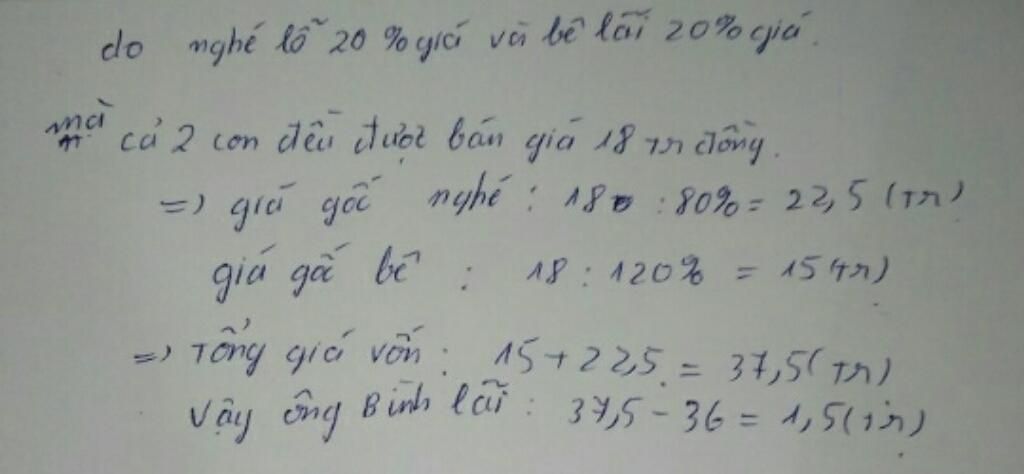 do nghé lỗ 20% giá và bê lãi 20% giá.
mà cả 2 con đều được bán giá 18 tr đồng.
=> giá gốc nghé : 18 : 80% = 22,5 (tr)
giá gố bê : 18 : 120% = 15 (tr)
=> Tổng giá vốn : 15 + 22,5 = 37,5 (tr)
Vậy ông Bình lãi : 37,5 - 36 = 1,5 (tr)